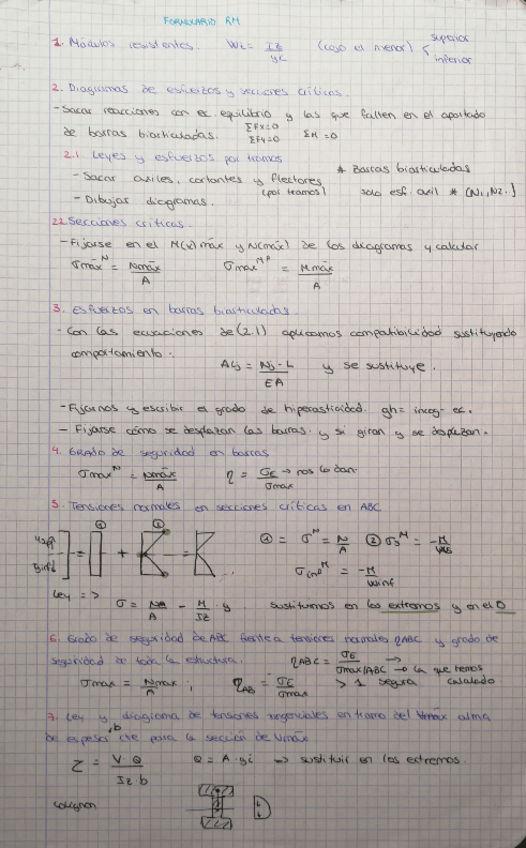 FORMULARIO RM
1. Módulos resistentes. Wz = Iz / yc (cojo el menor) < superior
inferior
2. Diagramas de esfuerzos y secciones críticas.
- Sacar reacciones con ec. equilibrio y las que falten en el apartado
de barras biarticuladas. ΣFx=0 ΣFy=0 ΣM=0
2.1 Leyes y esfuerzos por tramos * Barras biarticuladas
- Sacar axiles, cortantes y flectores (por tramos) solo esf. axil * (N1, N2.]
- Dibujar diagramas.
2.2 Secciones críticas.
- Fijarse en el M(x) máx y N(máx) de los diagramas y calcular
σmáx^N = Nmáx / A σmax^MF = Mmáx / A
3. esfuerzos en barras biarticuladas.
- Con las ecuaciones de (2.1) aplicamos compatibilidad sustituyendo
comportamiento.
= Nj · L / EA y se sustituye.
- Fijarnos y escribir el grado de hiperasticidad. gh = incog - ec.
- Fijarse cómo se desplazan las barras y si giran y se desplazan.
4. GRADO de seguridad en barras
σmax^N = Nmáx / A η = σe / σmax → nos lo dan.
5. Tensiones normales en secciones críticas en ABC
① + ② =
① = σ^N = N / A ② = -M
= -M / Winf
Ley => σ = / A - M / Iz · y sustituimos en los extremos y en el 0
6. Grado de seguridad de ABC frente a tensiones normales ηABC y grado de
seguridad de toda la estructura. ηABC = σe / σmax ABC → la que hemos calculado
σmax = Nmax / A ; ηAB = σe / σmax > 1 segura
7. Ley y diagrama de tensiones tangenciales en tramo del Vmáx alma
de espesor, b cte para la sección de Vmáx
Z = V · Q / Iz · b Q = A · yi => sustituir en los extremos.
colignon